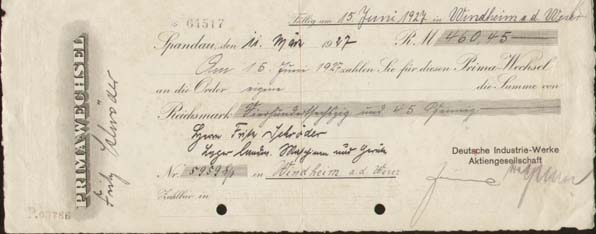 * 64517
Fällig am 15. Juni 1927 in Windheim a.d. Weser
Spandau, den 11. März 1927 R.M 460.45
Am 15. Juni 1927 zahlen Sie für diesen Prima-Wechsel
an die Order eigene die Summe von
Reichsmark Vierhundertsechzig und 45 Pfennig
Herrn Fritz Schröder
Lager landw. Maschinen und Geräte
Nr. in Windheim a.d. Weser
Zahlbar in
Deutsche Industrie-Werke
Aktiengesellschaft
PRIMA-WECHSEL
Fritz Schröder
P.03786